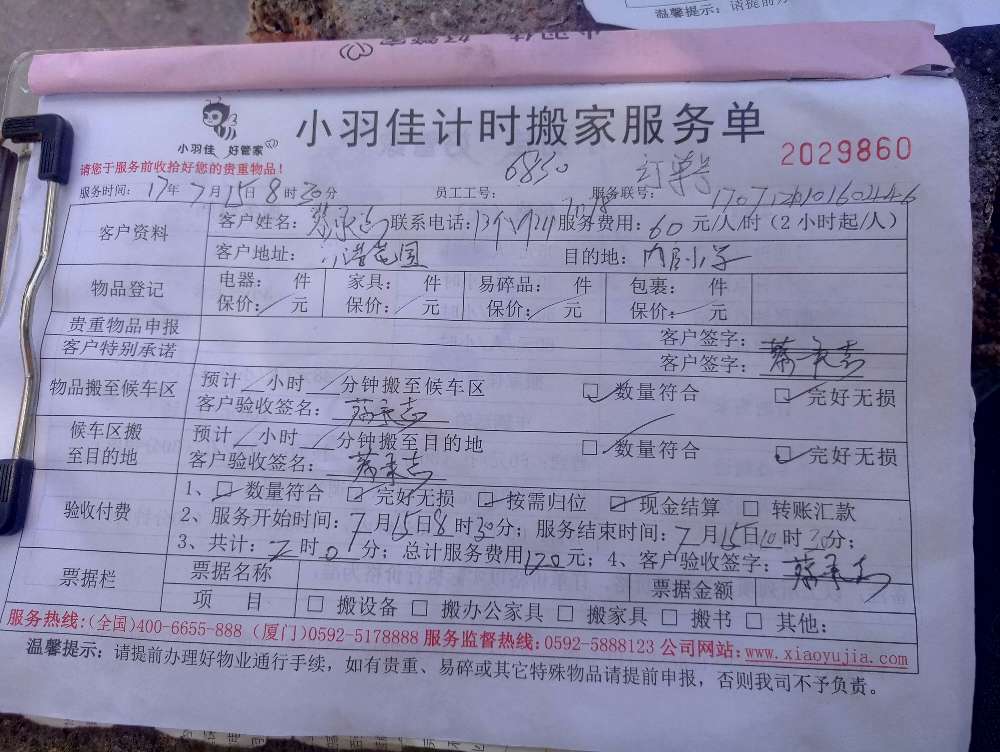 温馨提示：请提前办
小羽佳 好管家
小羽佳 好管家
小羽佳计时搬家服务单
2029860
请您于服务前收拾好您的贵重物品！
6830 订单号
服务时间：17年7月15日8时30分 员工工号： 服务联号：
客户资料
客户姓名： 联系电话： 服务费用：60元/人/时（2小时起/人）
客户地址： 花园 目的地： 小学
物品登记
电器： 件 家具： 件 易碎品： 件 包裹： 件
保价： 元 保价： 元 保价： 元 保价： 元
贵重物品申报 客户签字：
客户特别承诺 客户签字：
物品搬至候车区
预计 小时 分钟搬至候车区 数量符合 完好无损
客户验收签名：
候车区搬至目的地
预计 小时 分钟搬至目的地 数量符合 完好无损
客户验收签名：
验收付费
1、 数量符合 完好无损 按需归位 现金结算 转账汇款
2、服务开始时间：7月15日8时30分；服务结束时间：7月15日10时30分；
3、共计：2时0分；总计服务费用120元；4、客户验收签字：
票据栏
票据名称 票据金额
项 目 搬设备 搬办公家具 搬家具 搬书 其他：
服务热线：(全国)400-6655-888 (厦门)0592-5178888 服务监督热线：0592-5888123 公司网站：www.xiaoyujia.com
温馨提示：请提前办理好物业通行手续，如有贵重、易碎或其它特殊物品请提前申报，否则我司不予负责。